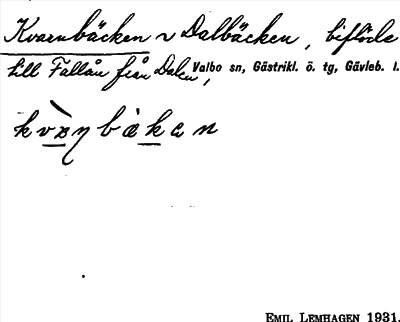 Kvarnbäcken v Dalbäcken, biflöde
till Fallån från Dalen, Valbo sn, Gästrikl. ö. tg, Gävleb. l.
EMIL LEMHAGEN 1931.